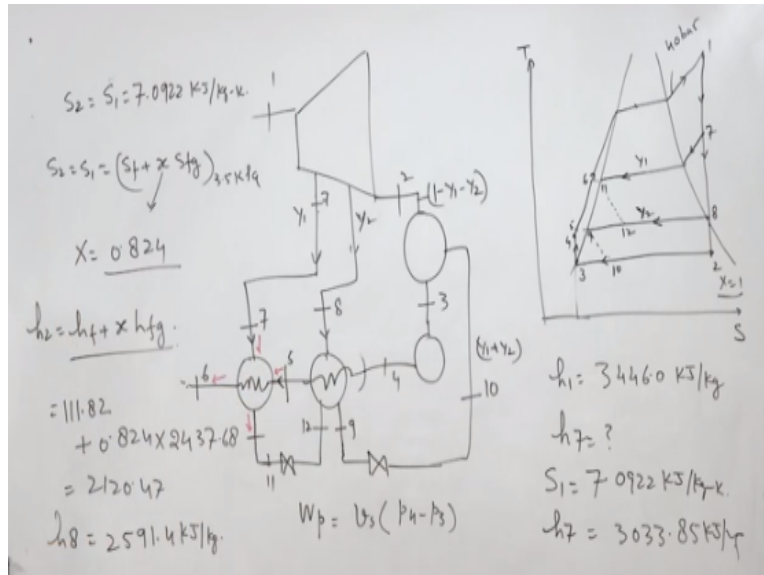 S2 = S1 = 7.0922 KJ/kg-K.
S2 = S1 = (Sf + x Sfg)3.5KPa
X = 0.824
h2 = hf + x hfg.
= 111.82
+ 0.824 x 2437.68
= 2120.47
h8 = 2591.4 KJ/kg.
1
7
y1
y2
2
(1-y1-y2)
3
7
8
6
5
4
(y1+y2)
10
12
9
11
Wp = v3 (P4-P3)
T
40bar
1
7
6
11
y1
5
4
y2
12
8
3
10
2
X=1
S
h1 = 3446.0 KJ/kg
h7 = ?
S1 = 7.0922 KJ/kg-K.
h7 = 3033.85 KJ/kg